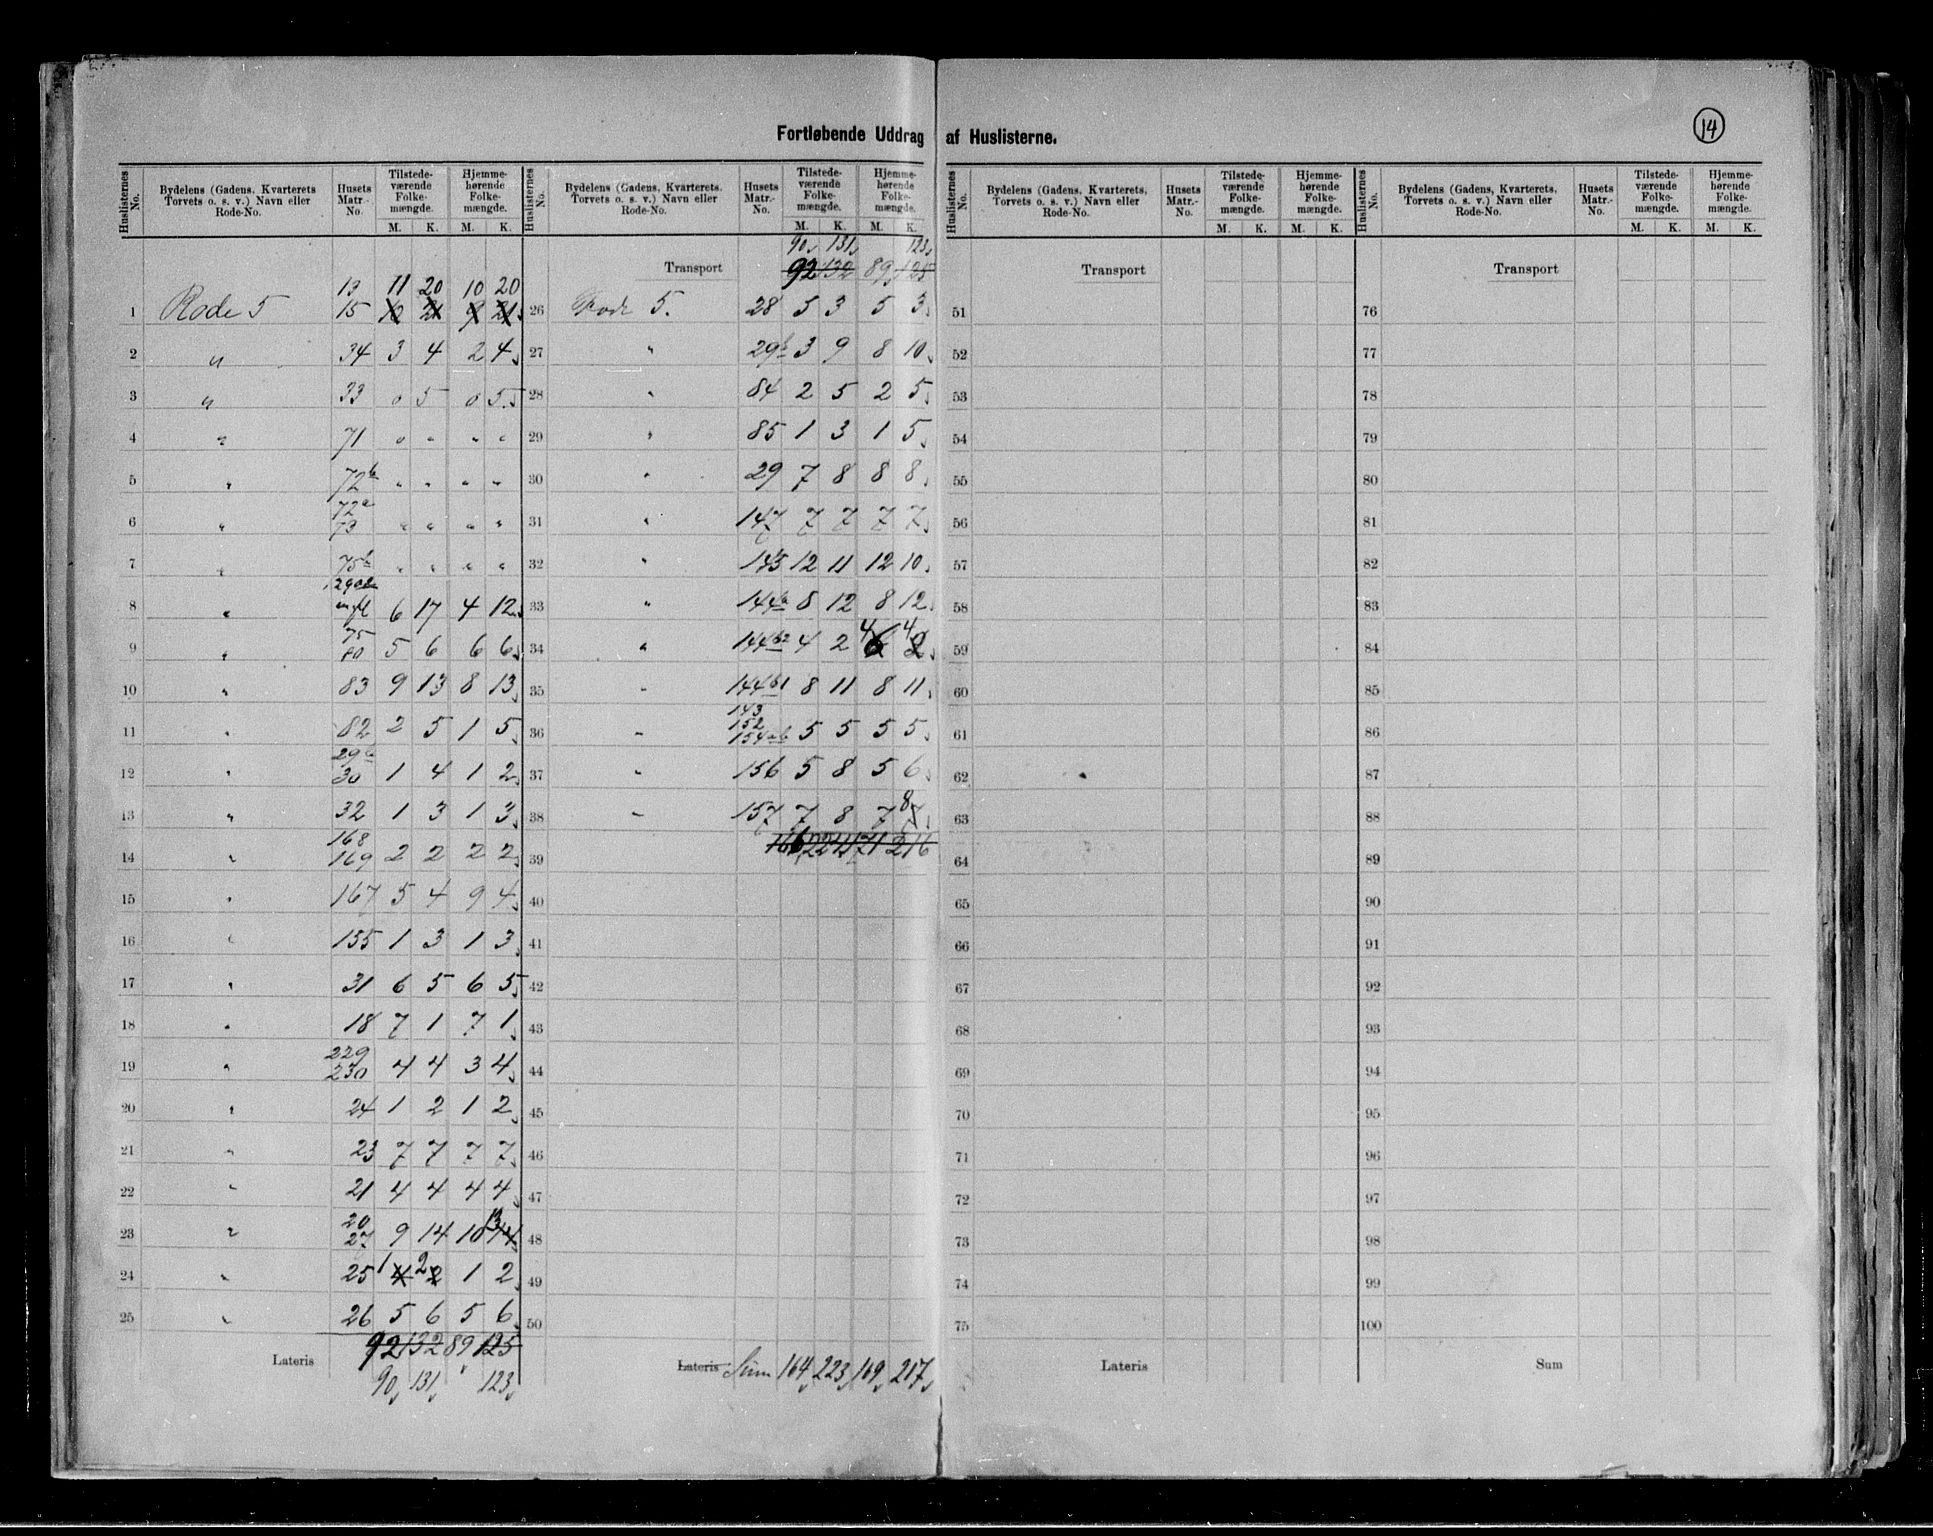 Fortløbende Uddrag af Huslisterne.
14
Huslisternes No. | Bydelens (Gadens, Kvarterets Torvets o. s. v.) Navn eller Rode-No. | Husets Matr.-No. | Tilstedeværende Folkemængde. M. K. | Hjemmehørende Folkemængde. M. K.
1 Rode 5 13 15 11 20 10 20
2 " 34 3 4 2 4
3 " 33 0 5 0 5
4 " 71 " " " "
5 " 72b " " " "
6 " 72a 73 " " " "
7 " 75b " " " "
8 " 6 17 4 12
9 " 75 80 5 6 6 6
10 " 83 9 13 8 13
11 " 82 2 5 1 5
12 " 29b 30 1 4 1 2
13 " 32 1 3 1 3
14 " 168 169 2 2 2 2
15 " 167 5 4 9 4
16 " 155 1 3 1 3
17 " 31 6 5 6 5
18 " 18 7 1 7 1
19 " 229 230 4 4 3 4
20 " 24 1 2 1 2
21 " 23 7 7 7 7
22 " 21 4 4 4 4
23 " 20 27 9 14 10 13
24 " 25 1 2 1 2
25 " 26 5 6 5 6
92 132 89 125
Lateris
90 131 123
Huslisternes No. | Bydelens (Gadens, Kvarterets, Torvets o. s. v.) Navn eller Rode-No. | Husets Matr.-No. | Tilstedeværende Folkemængde. M. K. | Hjemmehørende Folkemængde. M. K.
90 131 123
Transport 92 132 89 125
26 Rode 5. 28 5 3 5 3
27 " 29b 3 9 8 10
28 " 84 2 5 2 5
29 " 85 1 3 1 5
30 " 29 7 8 8 8
31 " 147 7 7 7 7
32 " 145 12 11 12 10
33 " 144a 8 12 8 12
34 " 144b2 4 2 4 4
35 " 144b1 8 11 8 11
36 " 143 152 154ab 5 5 5 5
37 " 156 5 8 5 6
38 " 157 7 8 7 8
39 166 224 171 216
40
41
42
43
44
45
46
47
48
49
50
Lateris Sum 164 223 169 217
Huslisternes No. | Bydelens (Gadens, Kvarterets, Torvets o. s. v.) Navn eller Rode-No. | Husets Matr.-No. | Tilstedeværende Folkemængde. M. K. | Hjemmehørende Folkemængde. M. K.
Transport
51
52
53
54
55
56
57
58
59
60
61
62
63
64
65
66
67
68
69
70
71
72
73
74
75
Lateris
Huslisternes No. | Bydelens (Gadens, Kvarterets, Torvets o. s. v.) Navn eller Rode-No. | Husets Matr.-No. | Tilstedeværende Folkemængde. M. K. | Hjemmehørende Folkemængde. M. K.
Transport
76
77
78
79
80
81
82
83
84
85
86
87
88
89
90
91
92
93
94
95
96
97
98
99
100
Sum